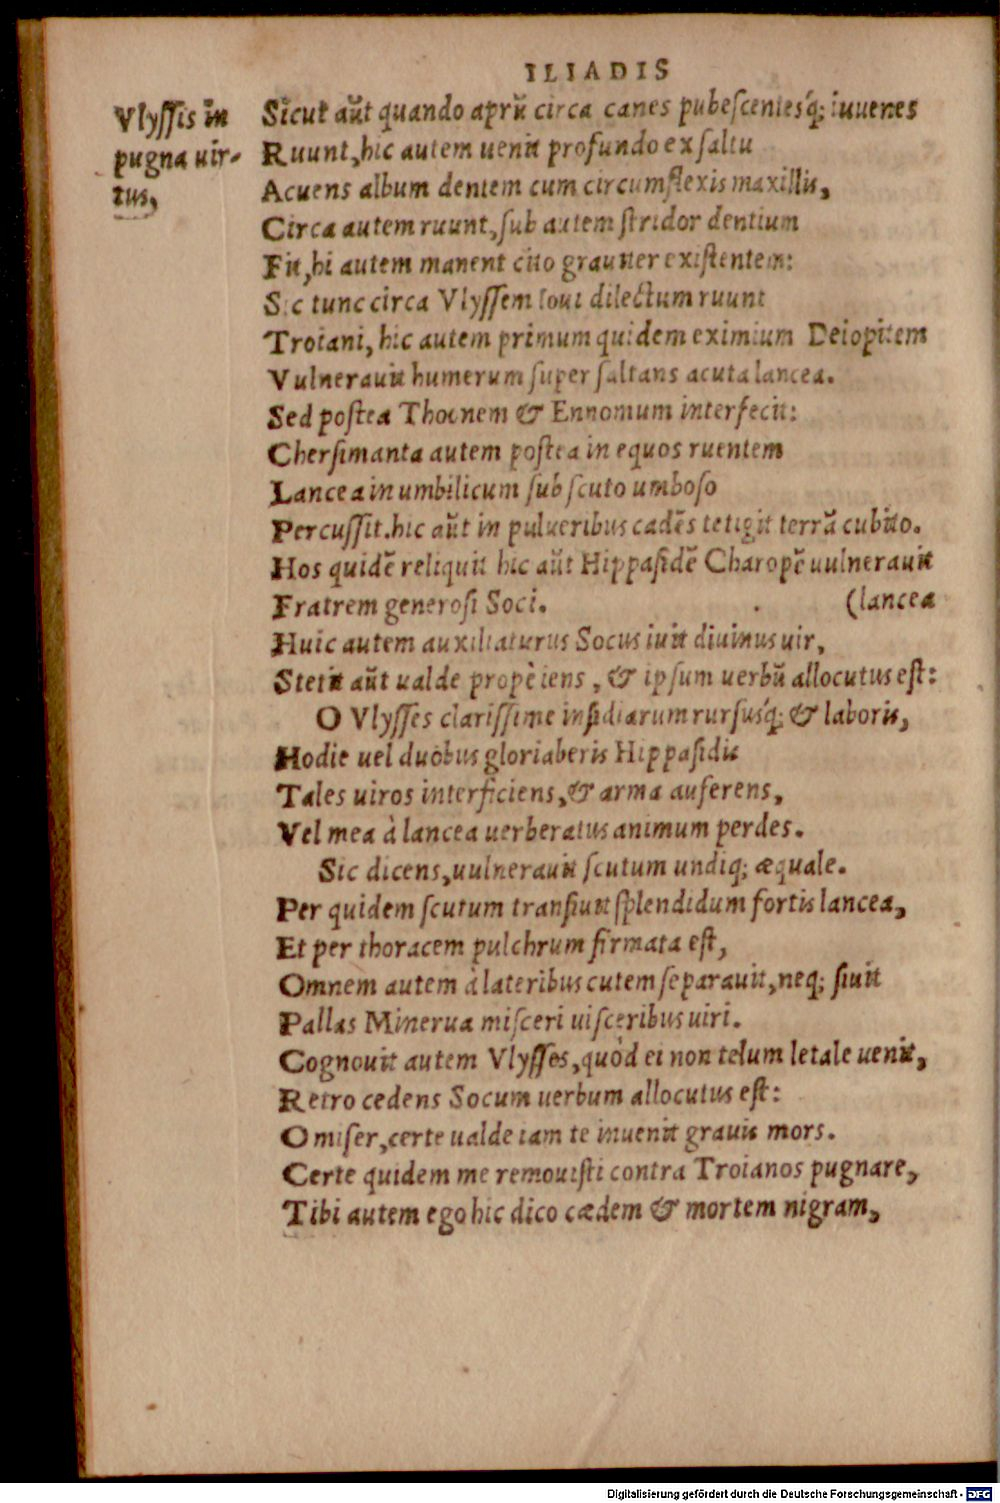 ILIADIS
Vlyſſis in
pugna uir-
tus,
Sicut aūt quando aprū circa canes pubeſcentesq́; iuuenes
Ruunt, hic autem uenit profundo ex ſaltu
Acuens album dentem cum circumflexis maxillis,
Circa autem ruunt, ſub autem ſtridor dentium
Fit, hi autem manent cito grauiter exiſtentem:
Sic tunc circa Vlyſſem Ioui dilectum ruunt
Troiani, hic autem primum quidem eximium Deiopitem
Vulnerauit humerum ſuper ſaltans acuta lancea.
Sed poſtea Thoonem & Ennomum interfecit:
Cherſimanta autem poſtea in equos ruentem
Lancea in umbilicum ſub ſcuto umboſo
Percuſſit. hic aūt in pulueribus cadēs tetigit terrā cubito.
Hos quidē reliquit hic aūt Hippaſidē Charopē uulnerauit
Fratrem generoſi Soci. (lancea
Huic autem auxiliaturus Socus iuit diuinus uir,
Stetit aūt ualde propè iens, & ipſum uerbū allocutus eſt:
O Vlyſſes clariſſime inſidiarum rurſusq́; & laboris,
Hodie uel duobus gloriaberis Hippaſidis
Tales uiros interficiens, & arma auferens,
Vel mea à lancea uerberatus animum perdes.
Sic dicens, uulnerauit ſcutum undiq; æquale.
Per quidem ſcutum tranſiuit ſplendidum fortis lancea,
Et per thoracem pulchrum firmata eſt,
Omnem autem à lateribus cutem ſeparauit, neq; ſiuit
Pallas Minerua miſceri uiſceribus uiri.
Cognouit autem Vlyſſes, quòd ei non telum letale uenit,
Retro cedens Socum uerbum allocutus eſt:
O miſer, certe ualde iam te inuenit grauis mors.
Certe quidem me remouiſti contra Troianos pugnare,
Tibi autem ego hic dico cædem & mortem nigram,
Digitalisierung gefördert durch die Deutsche Forschungsgemeinschaft - DFG